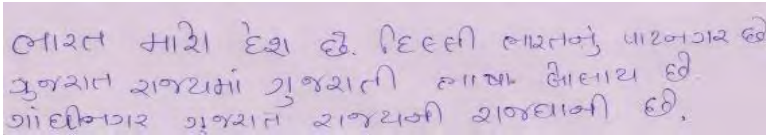 ભારત મારો દેશ છે. દિલ્લી ભારતનું પાટનગર છે
ગુજરાત રાજ્યમાં ગુજરાતી ભાષા બોલાય છે.
ગાંધીનગર ગુજરાત રાજ્યની રાજધાની છે.